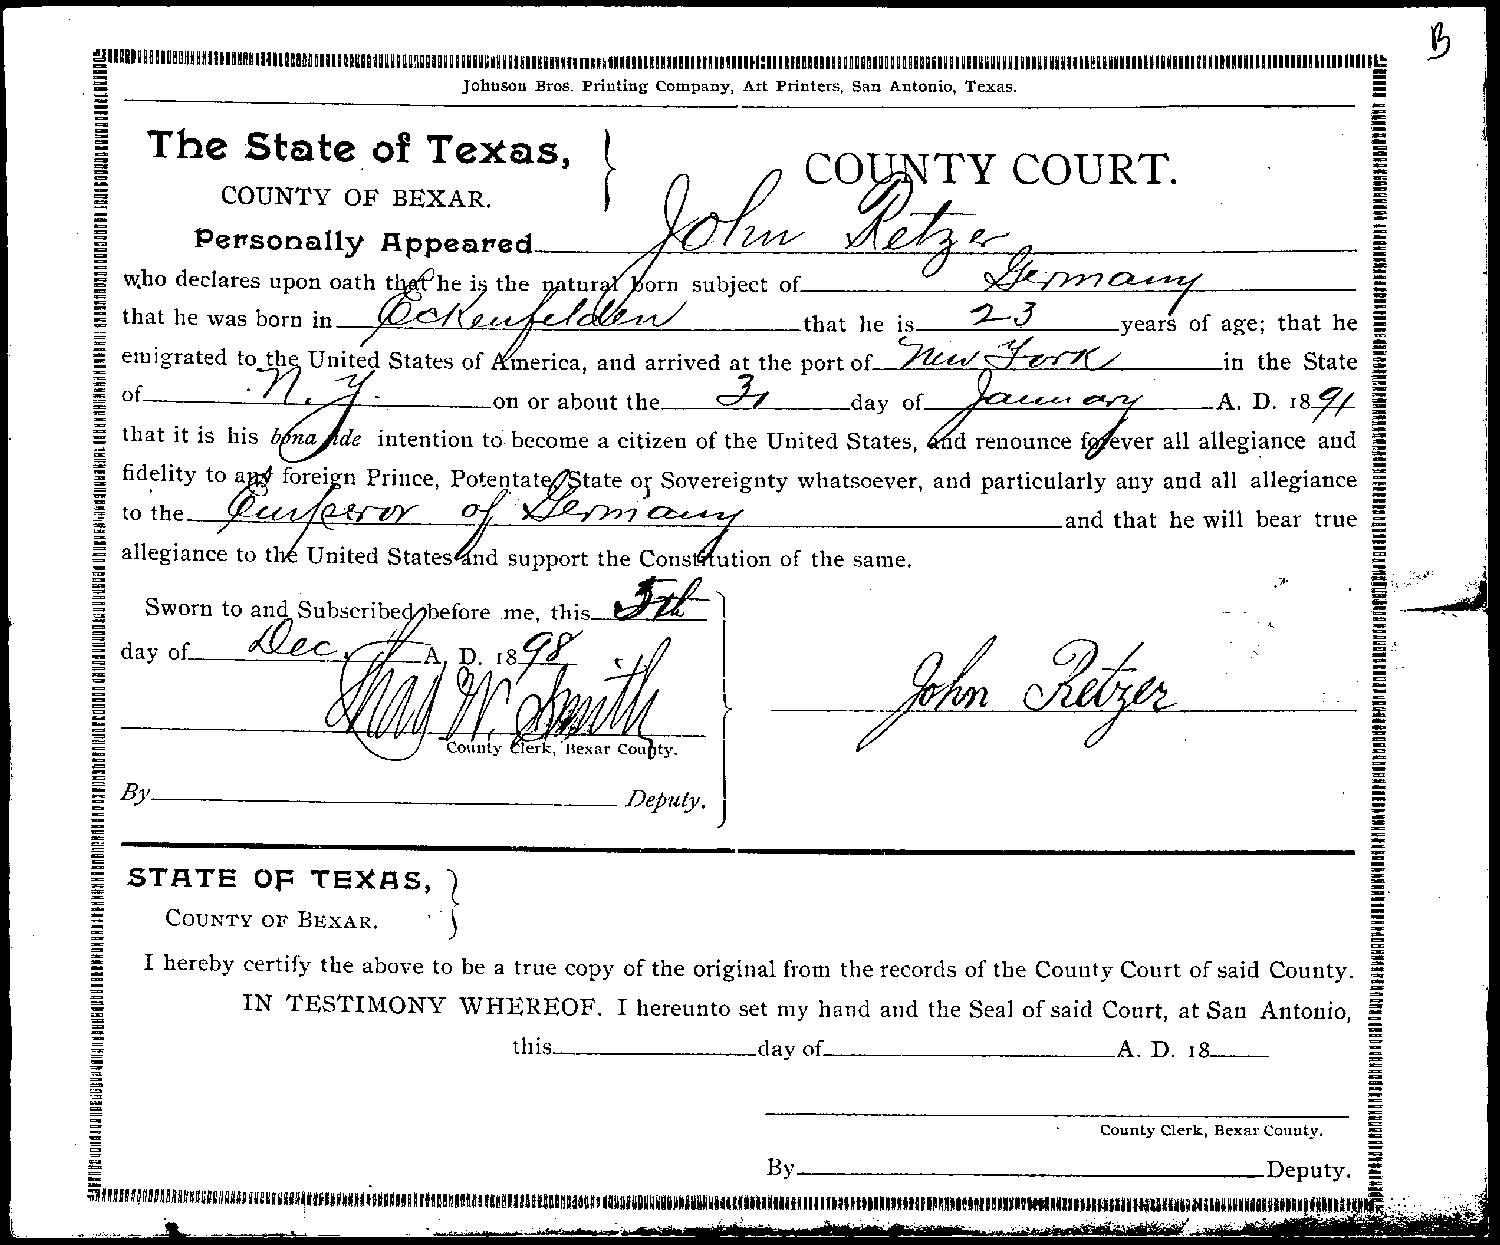 B
Johnson Bros. Printing Company, Art Printers, San Antonio, Texas.
The State of Texas,
COUNTY OF BEXAR.
COUNTY COURT.
Personally Appeared John Retzer
who declares upon oath that he is the natural born subject of Germany
that he was born in Eckenfelden that he is 23 years of age; that he
emigrated to the United States of America, and arrived at the port of New York in the State
of N. Y. on or about the 31 day of January A. D. 1891
that it is his bona fide intention to become a citizen of the United States, and renounce forever all allegiance and
fidelity to any foreign Prince, Potentate, State or Sovereignty whatsoever, and particularly any and all allegiance
to the Emperor of Germany and that he will bear true
allegiance to the United States and support the Constitution of the same.
Sworn to and Subscribed before me, this 5th
day of Dec. A. D. 1898
Thas W. Smith
County Clerk, Bexar County.
By Deputy.
John Retzer
STATE OF TEXAS,
COUNTY OF BEXAR.
I hereby certify the above to be a true copy of the original from the records of the County Court of said County.
IN TESTIMONY WHEREOF. I hereunto set my hand and the Seal of said Court, at San Antonio,
this day of A. D. 18
County Clerk, Bexar County.
By Deputy.